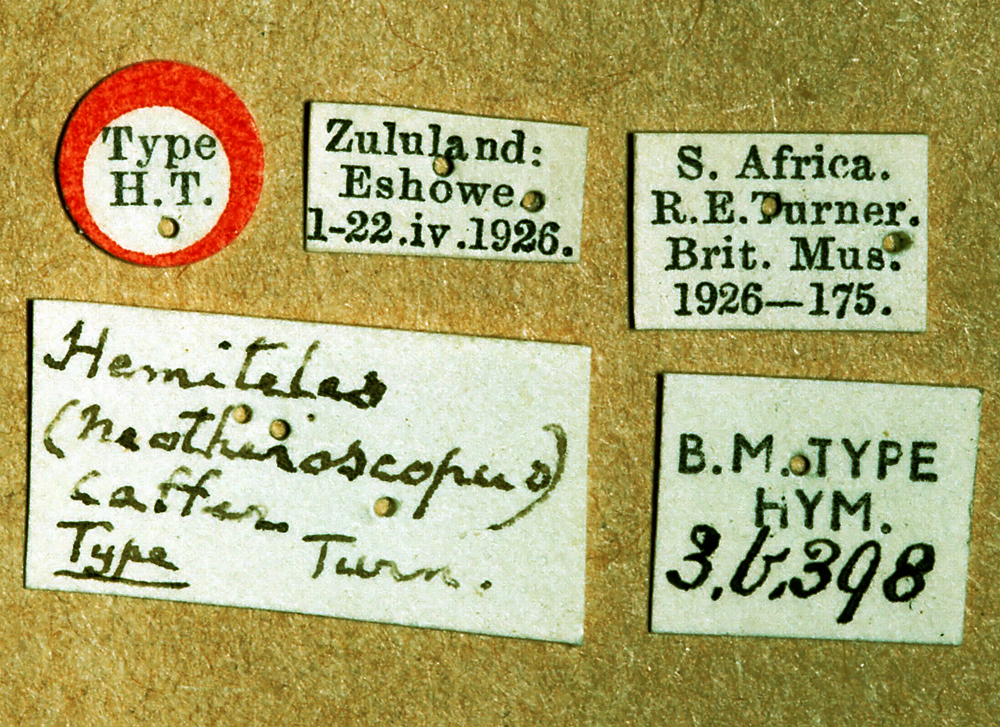 Type
H.T.
Zululand:
Eshowe.
1-22.iv.1926.
S. Africa.
R.E.Turner.
Brit. Mus.
1926—175.
Hemiteles
(Neotheroscopus)
caffer
Turn.
Type
B.M. TYPE
HYM.
3.b.398